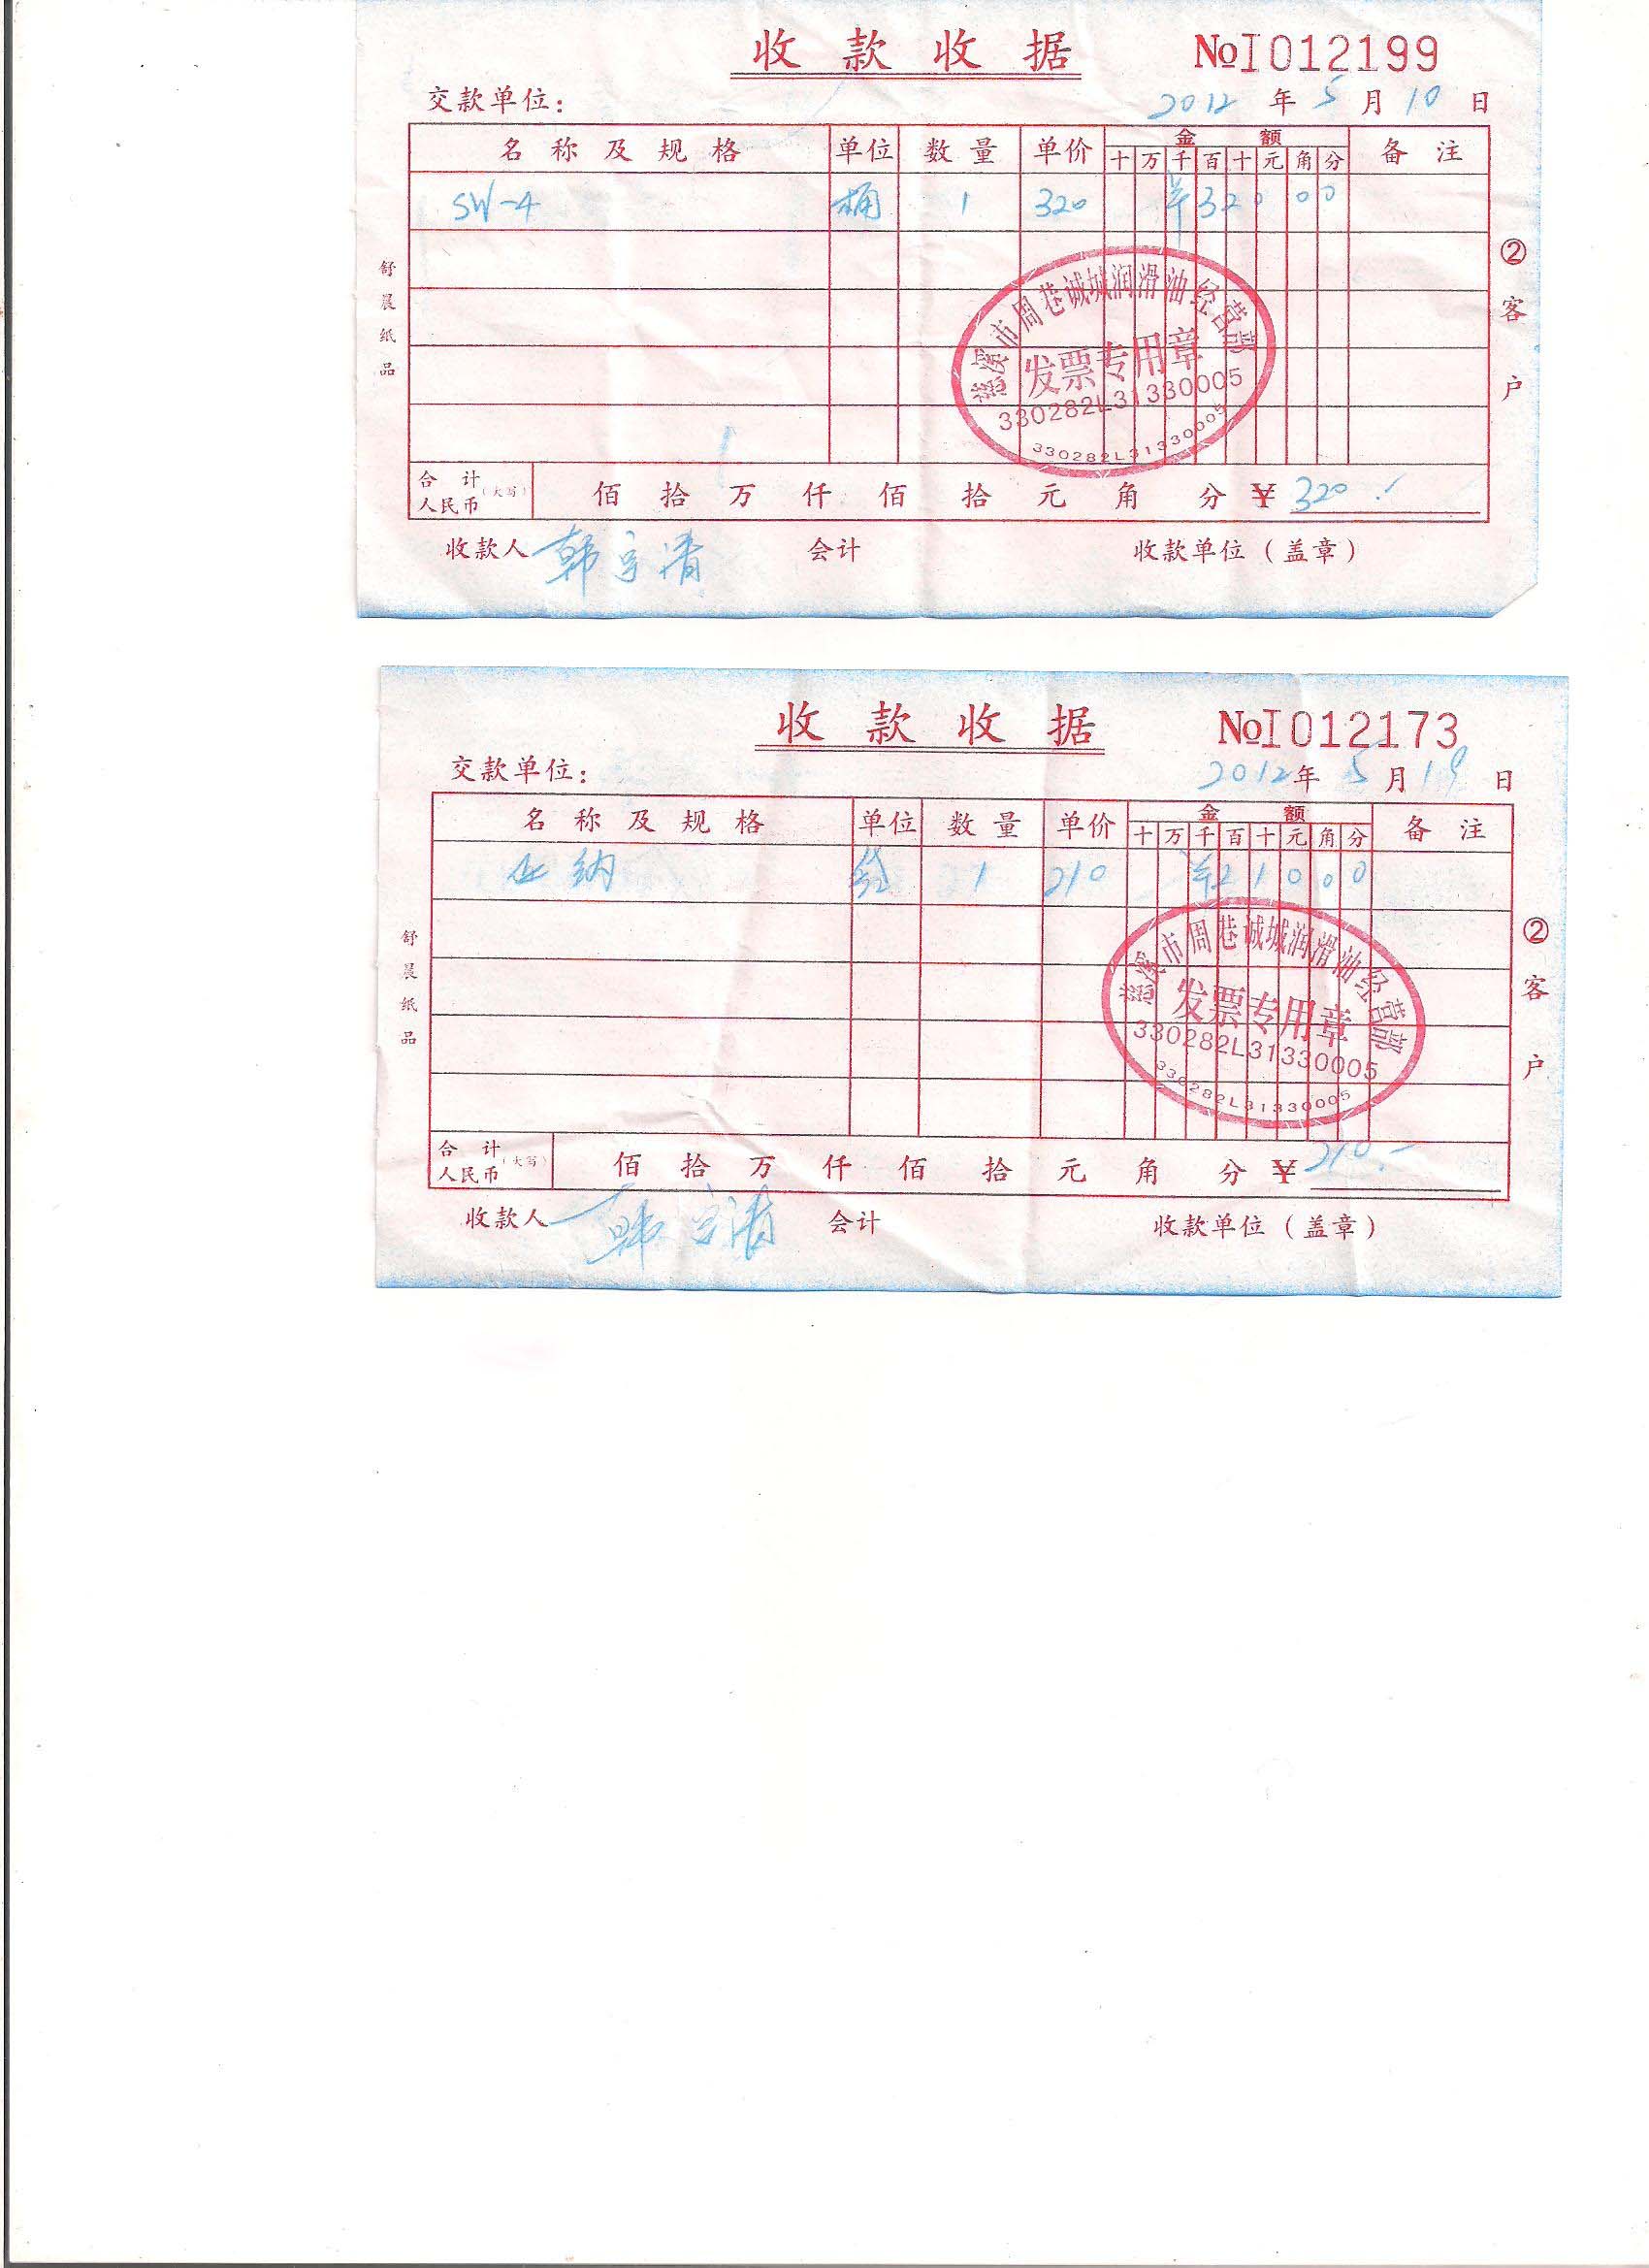 收款收据 №I012199
交款单位: 2012年5月10日
名称及规格 单位 数量 单价 金额 备注
十万千百十元角分
SW-4 桶 1 320 ¥320 00
合计人民币(大写) 佰拾万仟佰拾元角分 ¥320.-
收款人 韩宇清 会计 收款单位(盖章)
舒晨纸品
②客户
慈溪市周巷诚城润滑油经营部
发票专用章
330282L31330005
330282L31330005
收款收据 №I012173
交款单位: 2012年5月19日
名称及规格 单位 数量 单价 金额 备注
十万千百十元角分
纳 1 210 ¥210 00
合计人民币(大写) 佰拾万仟佰拾元角分 ¥210.-
收款人 韩宇清 会计 收款单位(盖章)
舒晨纸品
②客户
慈溪市周巷诚城润滑油经营部
发票专用章
330282L31330005
330282L31330005